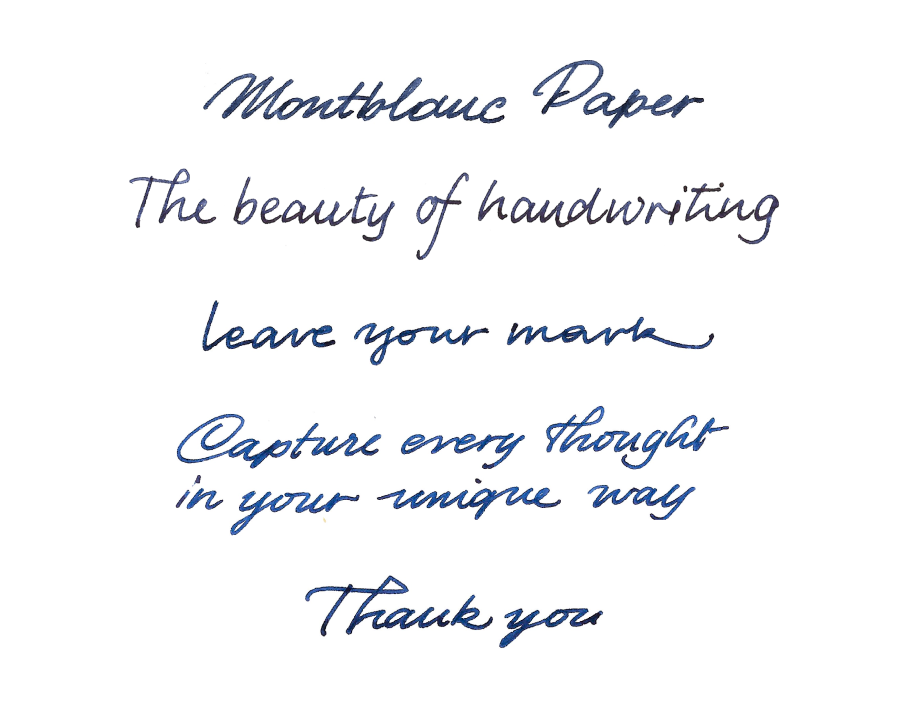 Montblanc Paper
The beauty of handwriting
leave your mark
Capture every thought
in your unique way
Thank you